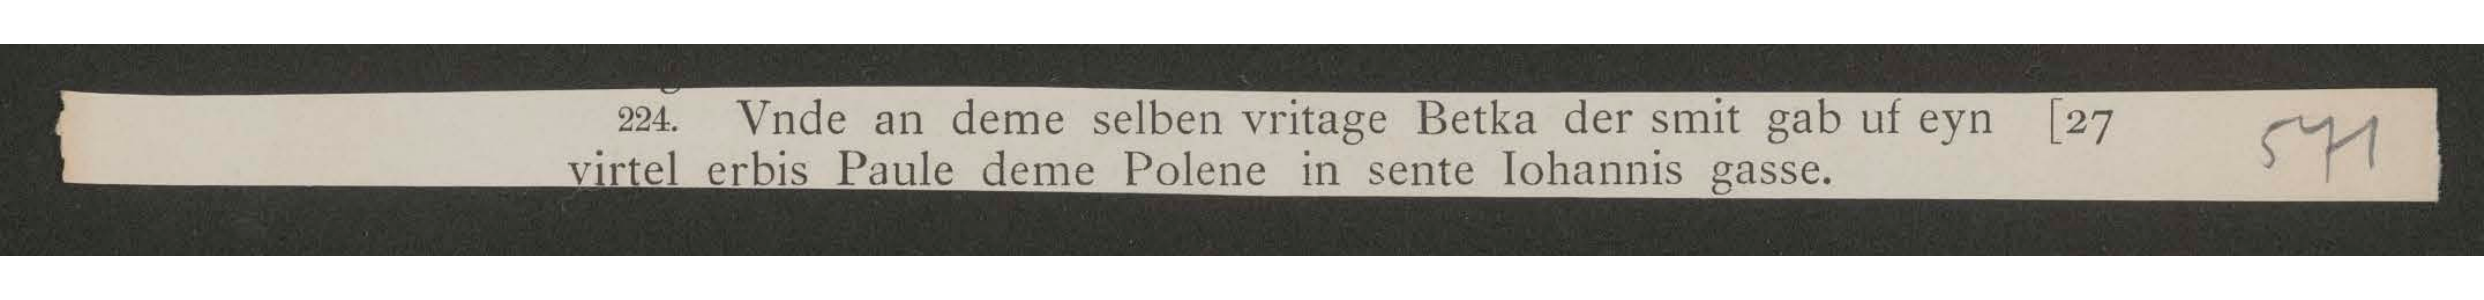 224. Vnde an deme selben vritage Betka der smit gab uf eyn [27
virtel erbis Paule deme Polene in sente Iohannis gasse.
571